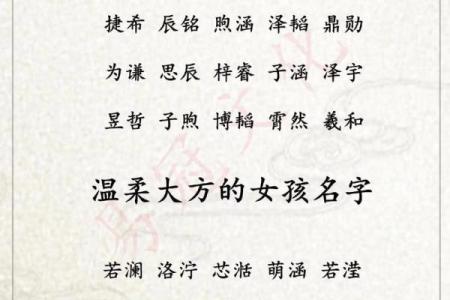 捷希 辰铭 煦涵 泽韬 鼎勋
为谦 思辰 梓睿 子涵 泽宇
昱哲 子煦 博韬 霄然 羲和
温柔大方的女孩名字
若澜 洛泞 芯湉 萌涵 若滢